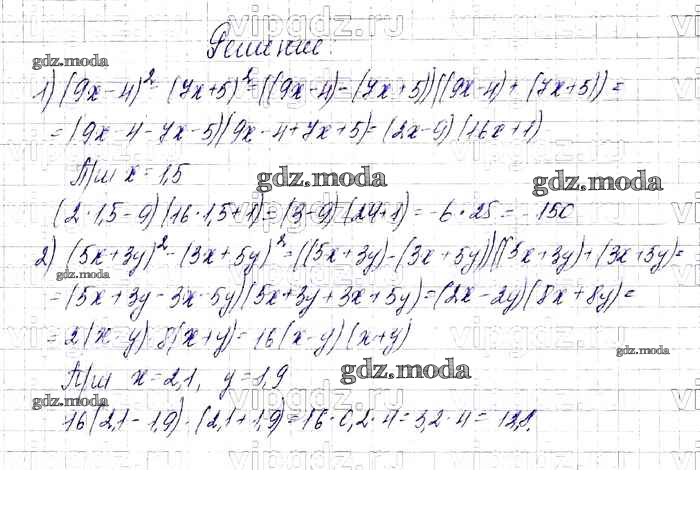 Решение:
1) (9x-4)² - (7x+5)² = ((9x-4)-(7x+5))((9x-4)+(7x+5)) =
= (9x-4-7x-5)(9x-4+7x+5) = (2x-9)(16x+1)
При x = 1,5
(2·1,5-9)(16·1,5+1) = (3-9)(24+1) = -6·25 = -150
2) (5x+3y)² - (3x+5y)² = ((5x+3y)-(3x+5y))((5x+3y)+(3x+5y) =
= (5x+3y-3x-5y)(5x+3y+3x+5y) = (2x-2y)(8x+8y) =
= 2(x-y)·8(x+y) = 16(x-y)(x+y)
При x = 2,1, y = 1,9
16(2,1-1,9)·(2,1+1,9) = 16·0,2·4 = 3,2·4 = 12,8.
gdz.moda
gdz.moda
gdz.moda
gdz.moda
gdz.moda
gdz.moda
gdz.moda
vipgdz.ru